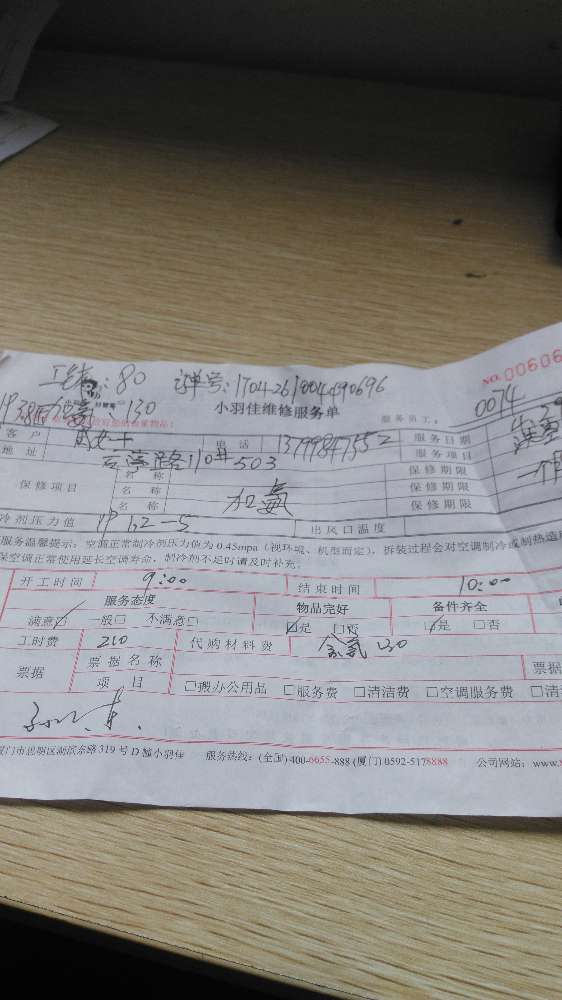 工钱:80 订单号:1704261004490696
NO.00606
130
小羽佳维修服务单
服务员工:
0074
客户 女士 电话 13799847552 服务日期
地址 路110# 503 服务项目
保修项目 名称 加氨 保修期限
名称 保修期限
名称 保修期限
一个
冷剂压力值 出风口温度
服务温馨提示:空调正常制冷剂压力值为0.45mpa(视环境、机型而定),拆装过程会对空调制冷或制热造
保空调正常使用延长空调寿命,制冷剂不足时请及时补充。
开工时间 9:00 结束时间 10:00
服务态度 物品完好 备件齐全
满意☑ 一般□ 不满意□ ☑是 □否 ☑是 □否
工时费 210 代购材料费 130
票据 票据名称 票据
项目 □搬办公用品 □服务费 □清洁费 □空调服务费 □清
厦门市思明区湖滨东路319号D幢小羽佳 服务热线:(全国)400-6655-888 (厦门)0592-5178888 公司网站:www.